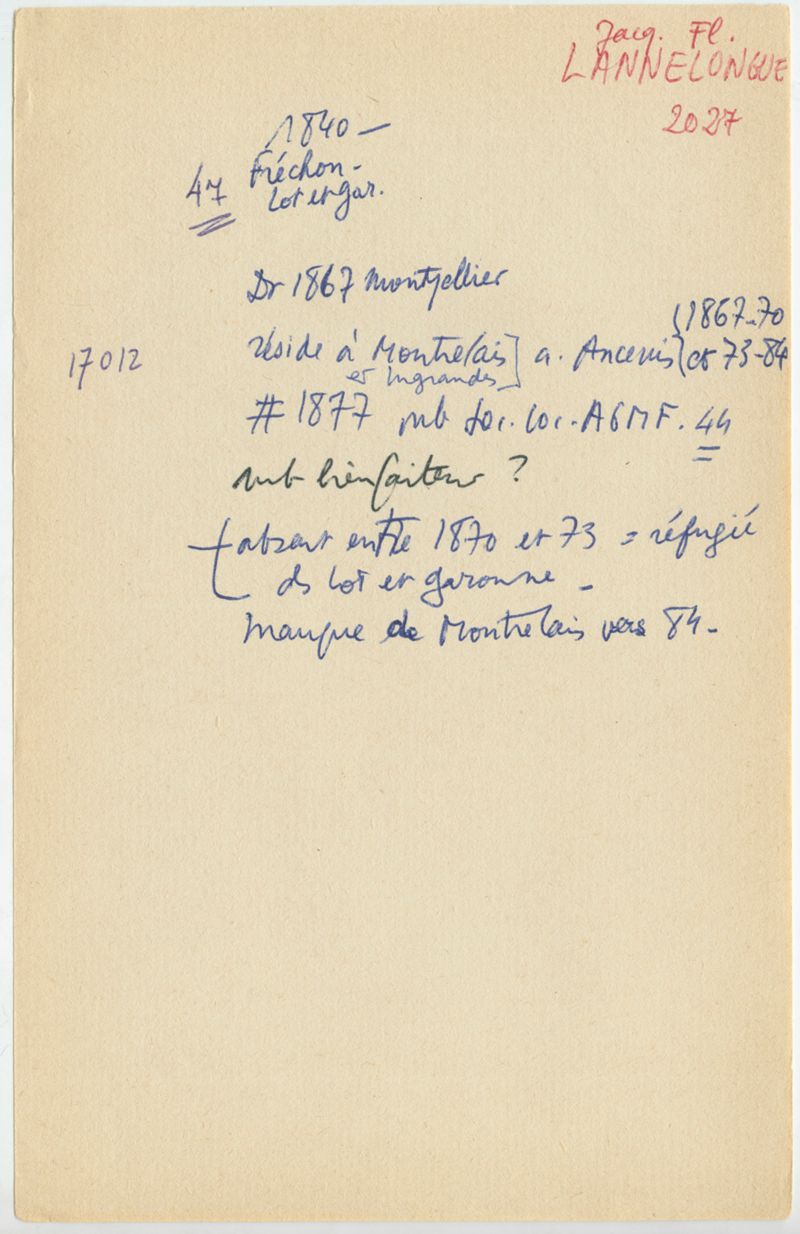 Jacq. Fl.
LANNELONGUE
2027
1840 —
47 Fréchon -
Lot et gar.
Dr 1867 Montpellier
17012
réside à Montrelais] a. Ancenis} (1867-70
et Ingrandes et 73-84
# 1877 mb Soc. loc. AGMF. 44
mb bienfaiteur ?
absent entre 1870 et 73 = réfugié
ds Lot et garonne -
manque de Montrelais vers 84 -